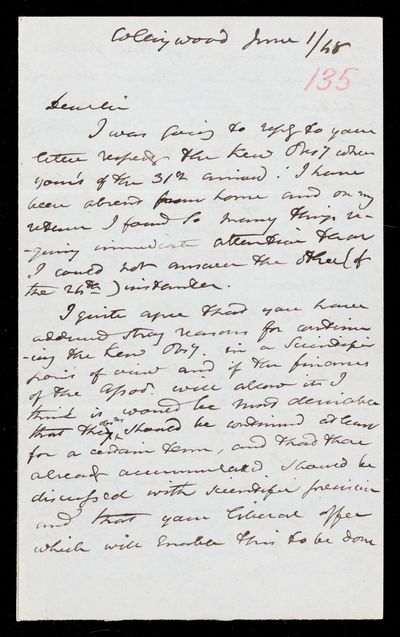 Collingwood June 1/48
135
Dear Sir
I was going to reply to your
letter respectg the Kew Obsy when
yours of the 31st arrived. I have
been absent from home and on my
return I found so many things re-
-quiring immediate attention that
I could not answer the other (of
the 26th) instanter.
I quite agree that you have
adduced strong reasons for continu-
-ing the Kew Obsy in a Scientific
point of view and if the finances
of the Assn. will allow it I
think it would be most desirable
that the obsns should be continued at least
for a certain term, and that those
already accumulated should be
discussed with scientific precision
and that your liberal offer
which will enable this to be done